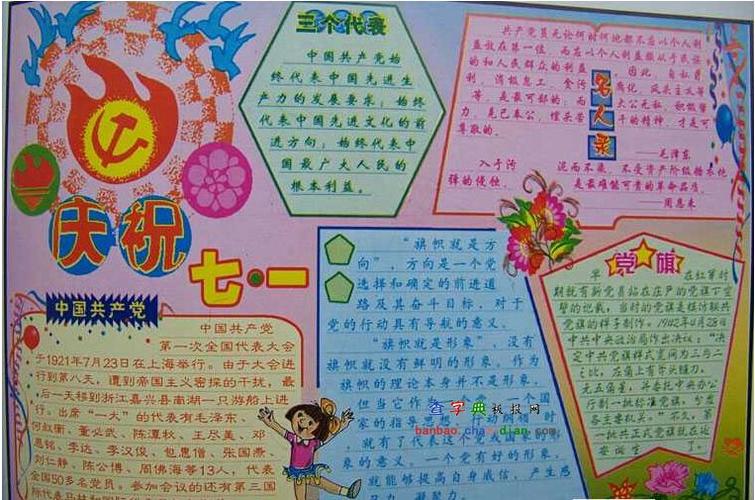 庆祝
七·一
三个代表
中国共产党始
终代表中国先进生
产力的发展要求;始终
代表中国先进文化的前
进方向;始终代表中
国最广大人民的
根本利益。
共产党员无论何时何地都不应以个人利
益放在第一位,而应以个人利益服从于民族
的和人民群众的利益。因此,自私自
利,消极怠工,贪污腐化,风头主义等
等,是最可鄙的;而大公无私,积极努
力,克己奉公,埋头苦干的精神,才是可
尊敬的。
——毛泽东
名人录
入于污泥而不染,不受资产阶级糖衣炮
弹的侵蚀,是最难能可贵的革命品质。
——周恩来
中国共产党
中国共产党
第一次全国代表大会
于1921年7月23日在上海举行。由于大会进
行到第八天,遭到帝国主义密探的干扰,最
后一天移到浙江嘉兴县南湖一只游船上进
行。出席“一大”的代表有毛泽东、
何叔衡、董必武、陈潭秋、王尽美、邓
恩铭、李达、李汉俊、包惠僧、张国焘、
刘仁静、陈公博、周佛海等13人,代表
全国50多名党员。参加会议的还有第三国
“旗帜就是方
向”,方向是一个党
选择和确定的前进道
路及其奋斗目标,对于
党的行动具有导航的意义。
“旗帜就是形象”,没有
旗帜就没有鲜明的形象。作为
旗帜的理论本身并不是形象,
但当它作为一个国
家的指导思想
就有了代表这个党或国家的形
象的意义。一个党有好的形象,
就能够提高自身威信,产生感
党旗
早在红军时
期就有新党员站在庄严的党旗下宣
誓的记载,当时的党旗是模仿联共
党旗的样子制作。1942年4月28日
中共中央政治局作出决议:“决
定中共党旗样式宽阔为三与二
之比,在角上有斧头镰刀,
无五角星,并委托中央办公
厅制一批标准党旗,分发
各主要机关”。不久,第
一批共式党旗就在延
安诞生了。
查字典板报网
banbao.chazidian.com